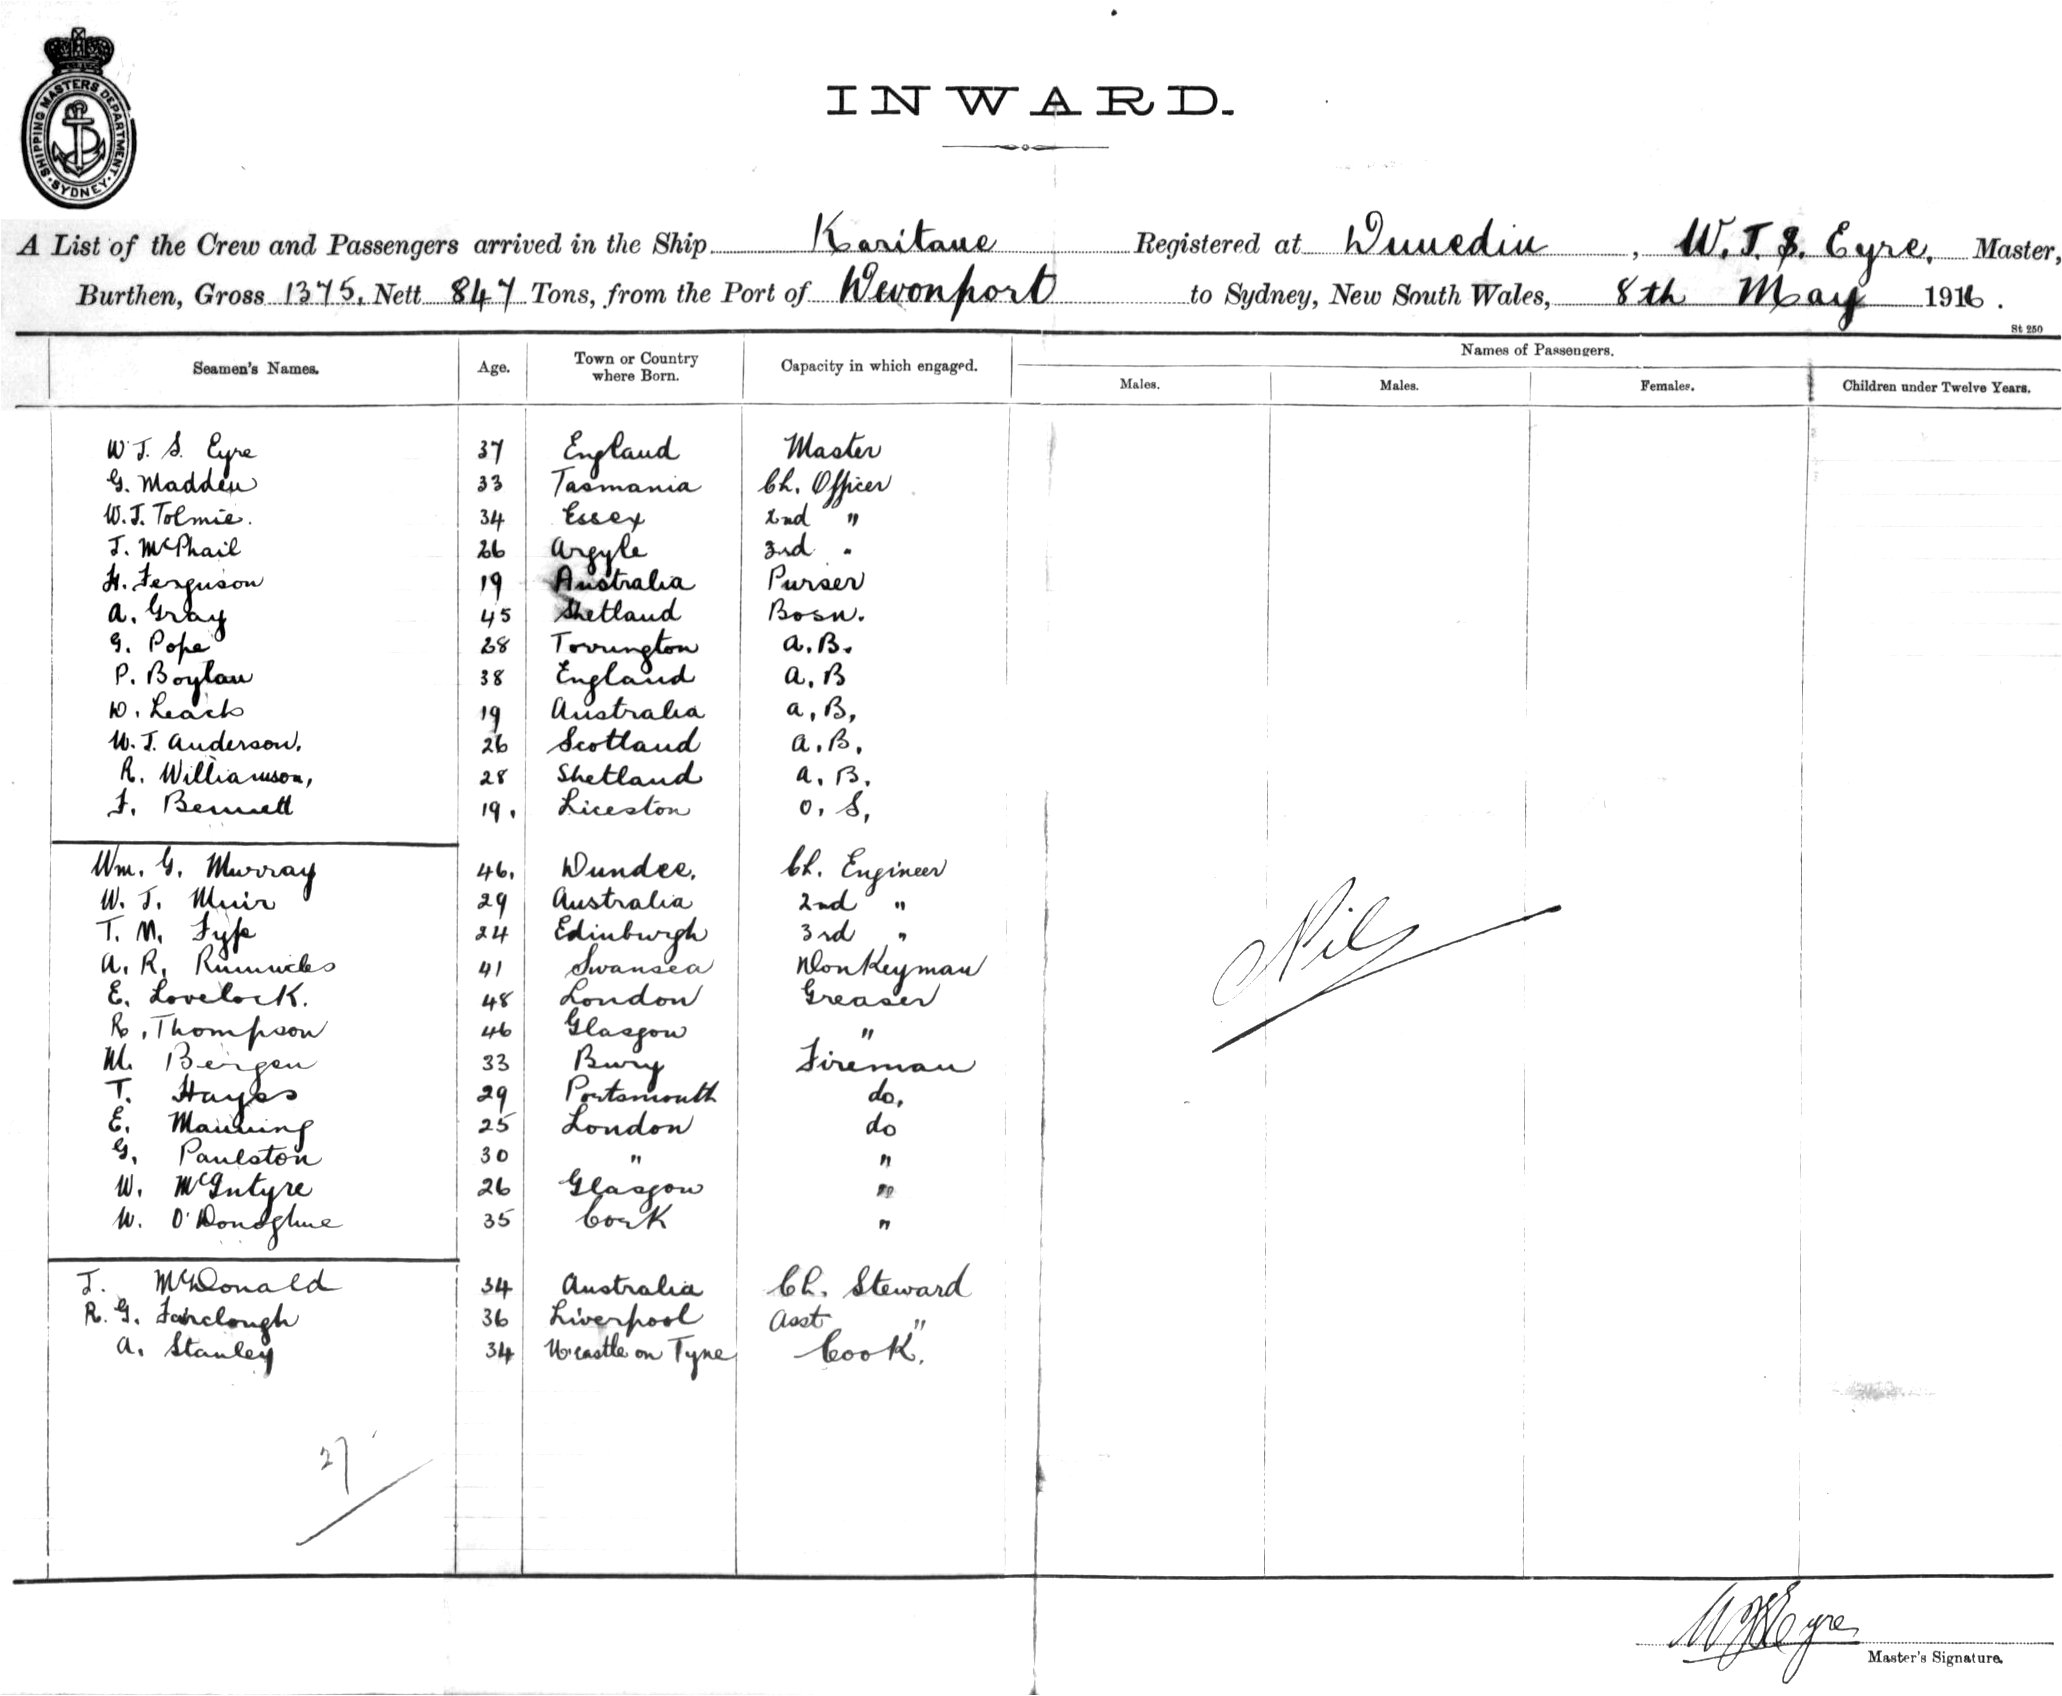 SHIPPING MASTERS DEPARTMENT. SYDNEY.
INWARD.
A List of the Crew and Passengers arrived in the Ship Karitane Registered at Dunedin, W. T. S. Eyre, Master,
Burthen, Gross 1375, Nett 847 Tons, from the Port of Devonport to Sydney, New South Wales, 8th May 1916.
St 250
Seamen's Names. Age. Town or Country where Born. Capacity in which engaged. Names of Passengers.
Males. Males. Females. Children under Twelve Years.
W T. S. Eyre 37 England Master
G. Madden 33 Tasmania Ch. Officer
W. J. Tolmie. 34 Essex 2nd "
J. McPhail 26 Argyle 3rd "
H. Ferguson 19 Australia Purser
A. Gray 45 Shetland Bosn.
G. Pope 28 Torrington A.B.
P. Boylan 38 England A.B
D. Leach 19 Australia A,B,
W. J. Anderson. 26 Scotland A.B.
R. Williamson, 28 Shetland A. B.
F. Bennett 19. Liceston O. S,
Wm. G. Murray 46. Dundee. Ch. Engineer
W. J. Muir 29 Australia 2nd "
T. M. Fyfe 24 Edinburgh 3rd "
A. R. 41 Swansea Donkeyman
E. Lovelock. 48 London Greaser
R. Thompson 46 Glasgow "
M. Bergen 33 Bury Fireman
T. Hayes 29 Portsmouth do.
E. Manning 25 London do
G. Paulston 30 " "
W. McIntyre 26 Glasgow "
W. O'Donoghue 35 Cork "
J. McDonald 34 Australia Ch. Steward
R. G. Fairclough 36 Liverpool Asst "
A. Stanley 34 N'castle on Tyne Cook.
Nil
27
W T S Eyre
Master's Signature.